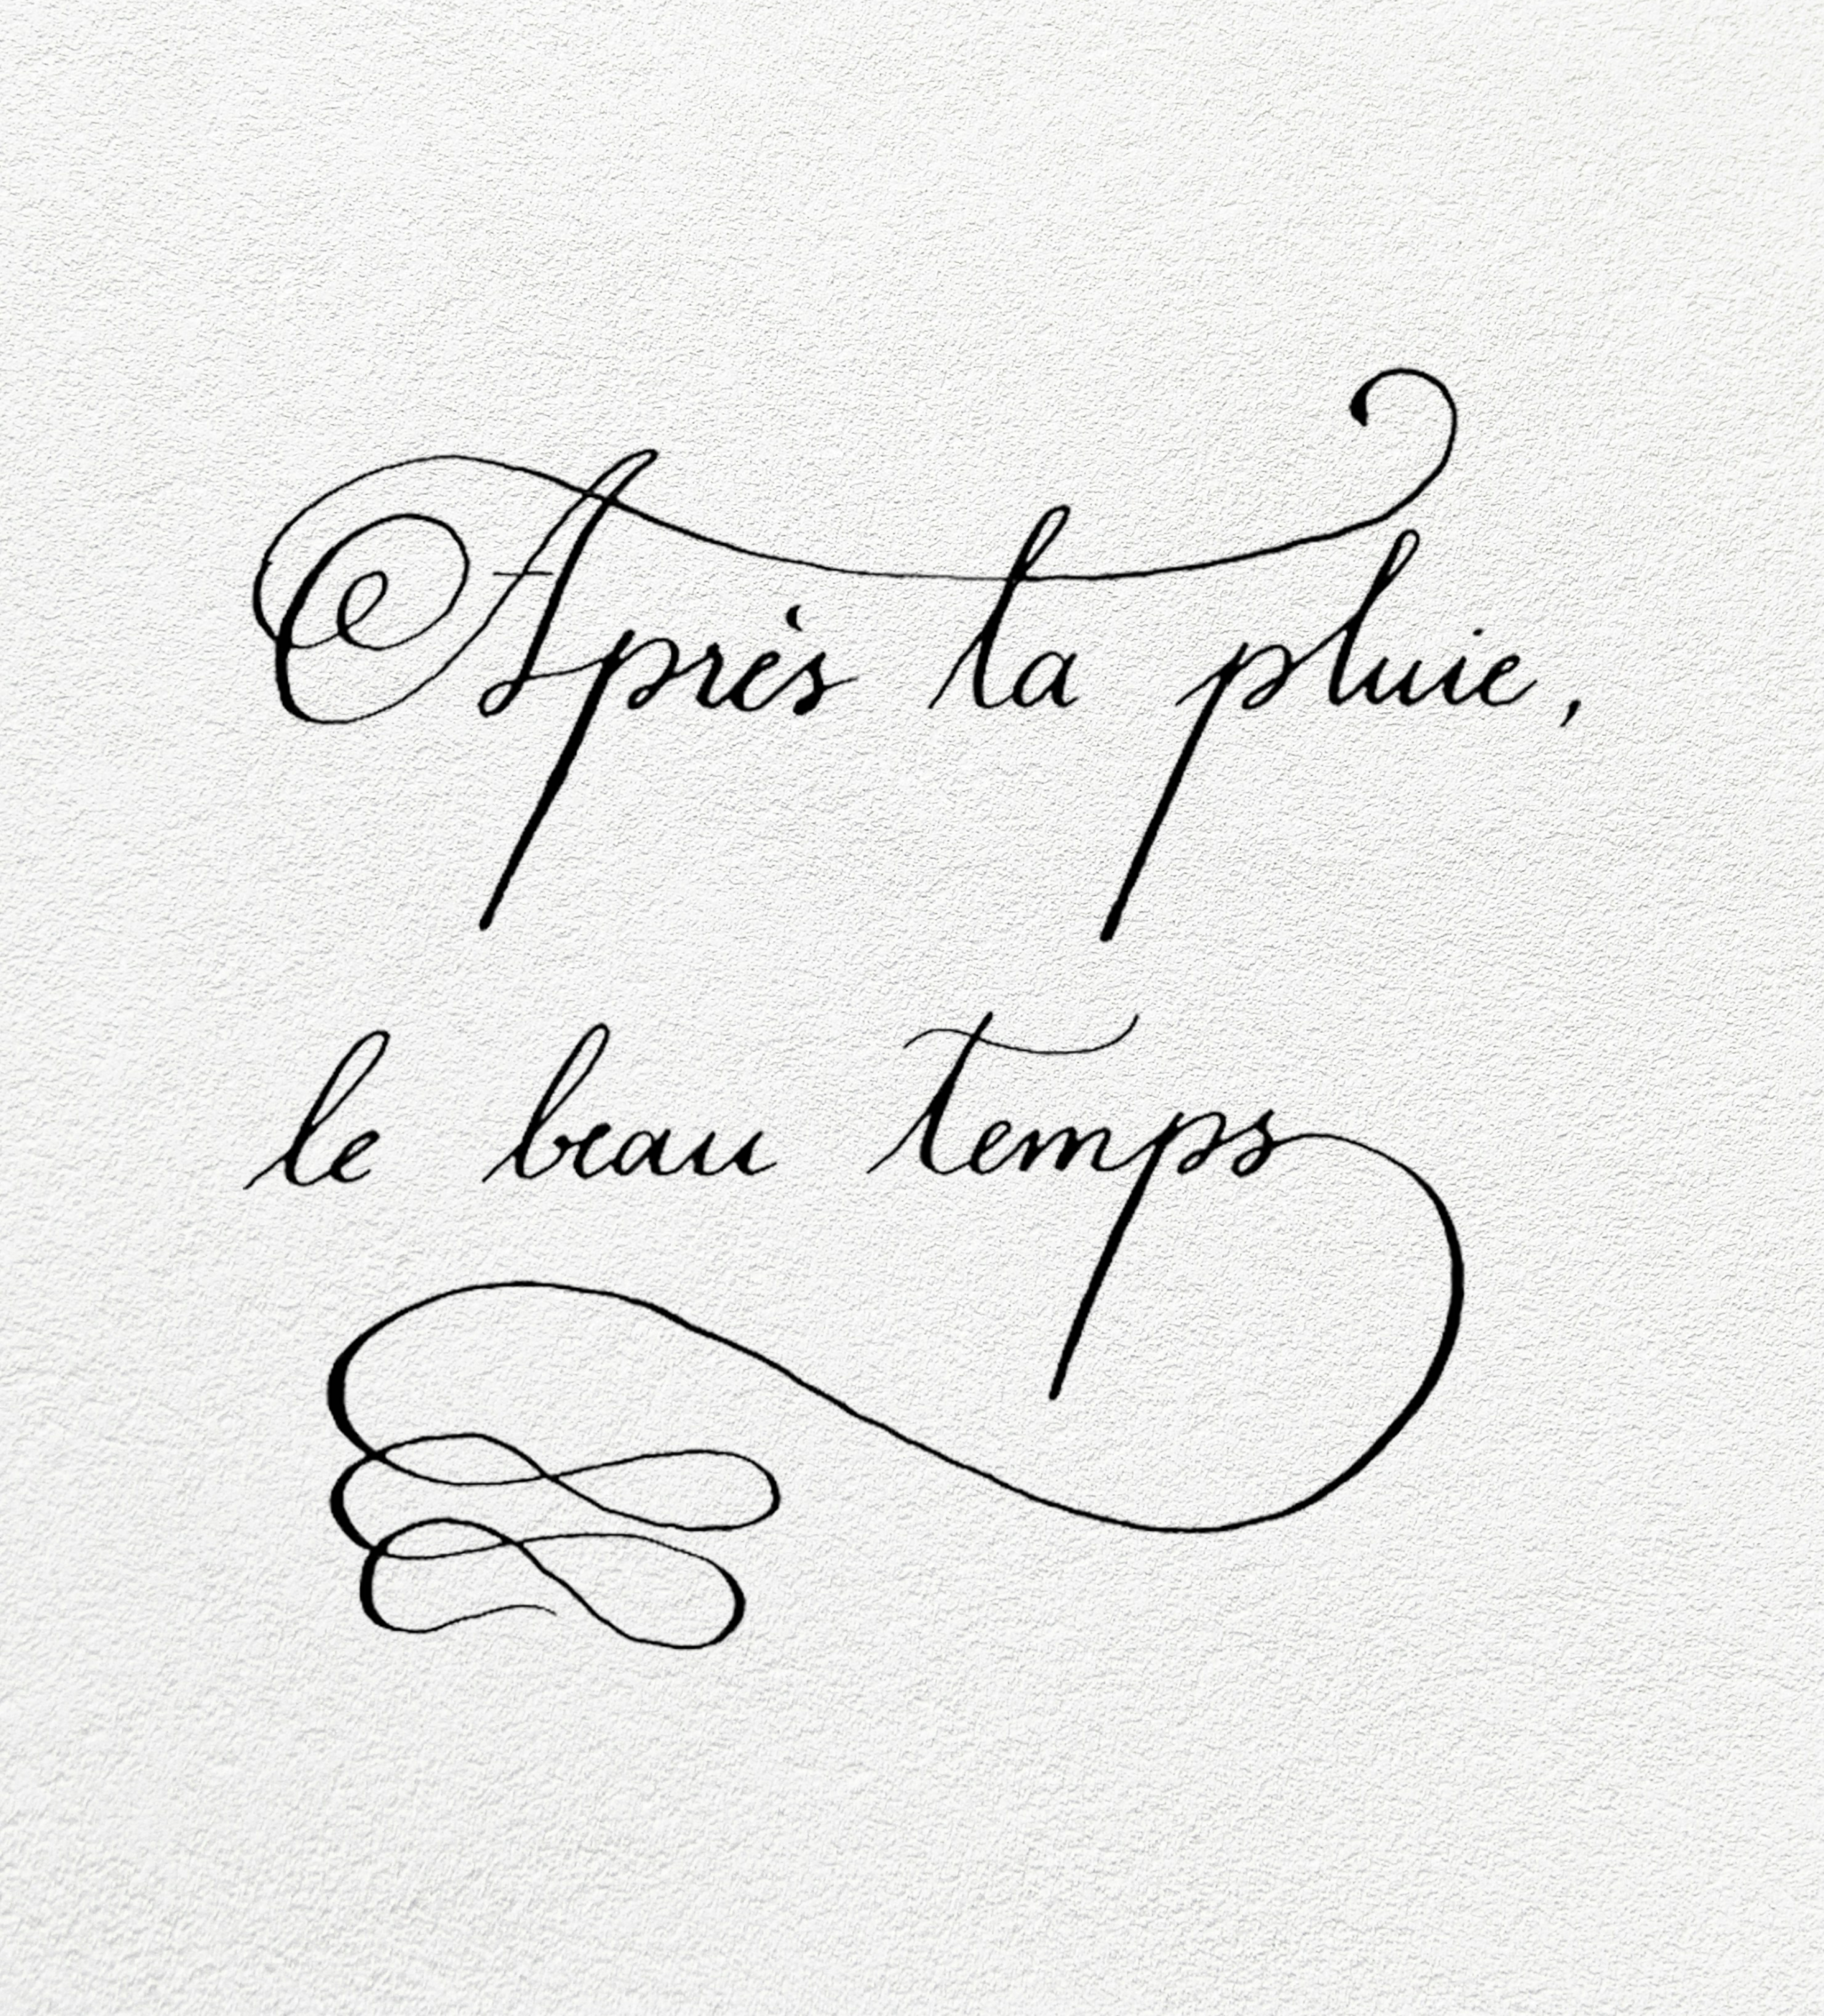 Après la pluie,
le beau temps